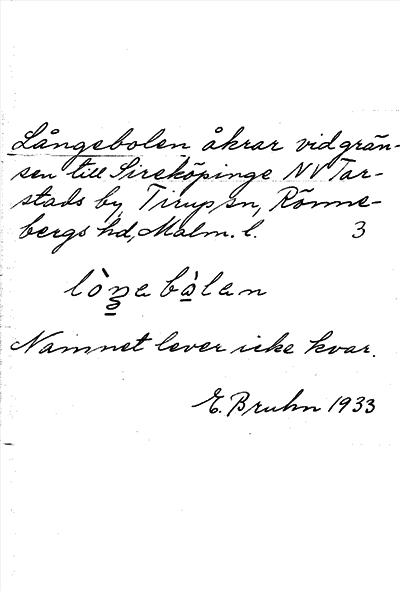 Långebolen åkrar vid grän-
sen till Sireköpinge NV Tar-
stads by, Tirup sn, Rönne-
bergs hd, Malm. l. 3
lòŋa bòlen
Namnet lever icke kvar.
E. Bruhn 1933